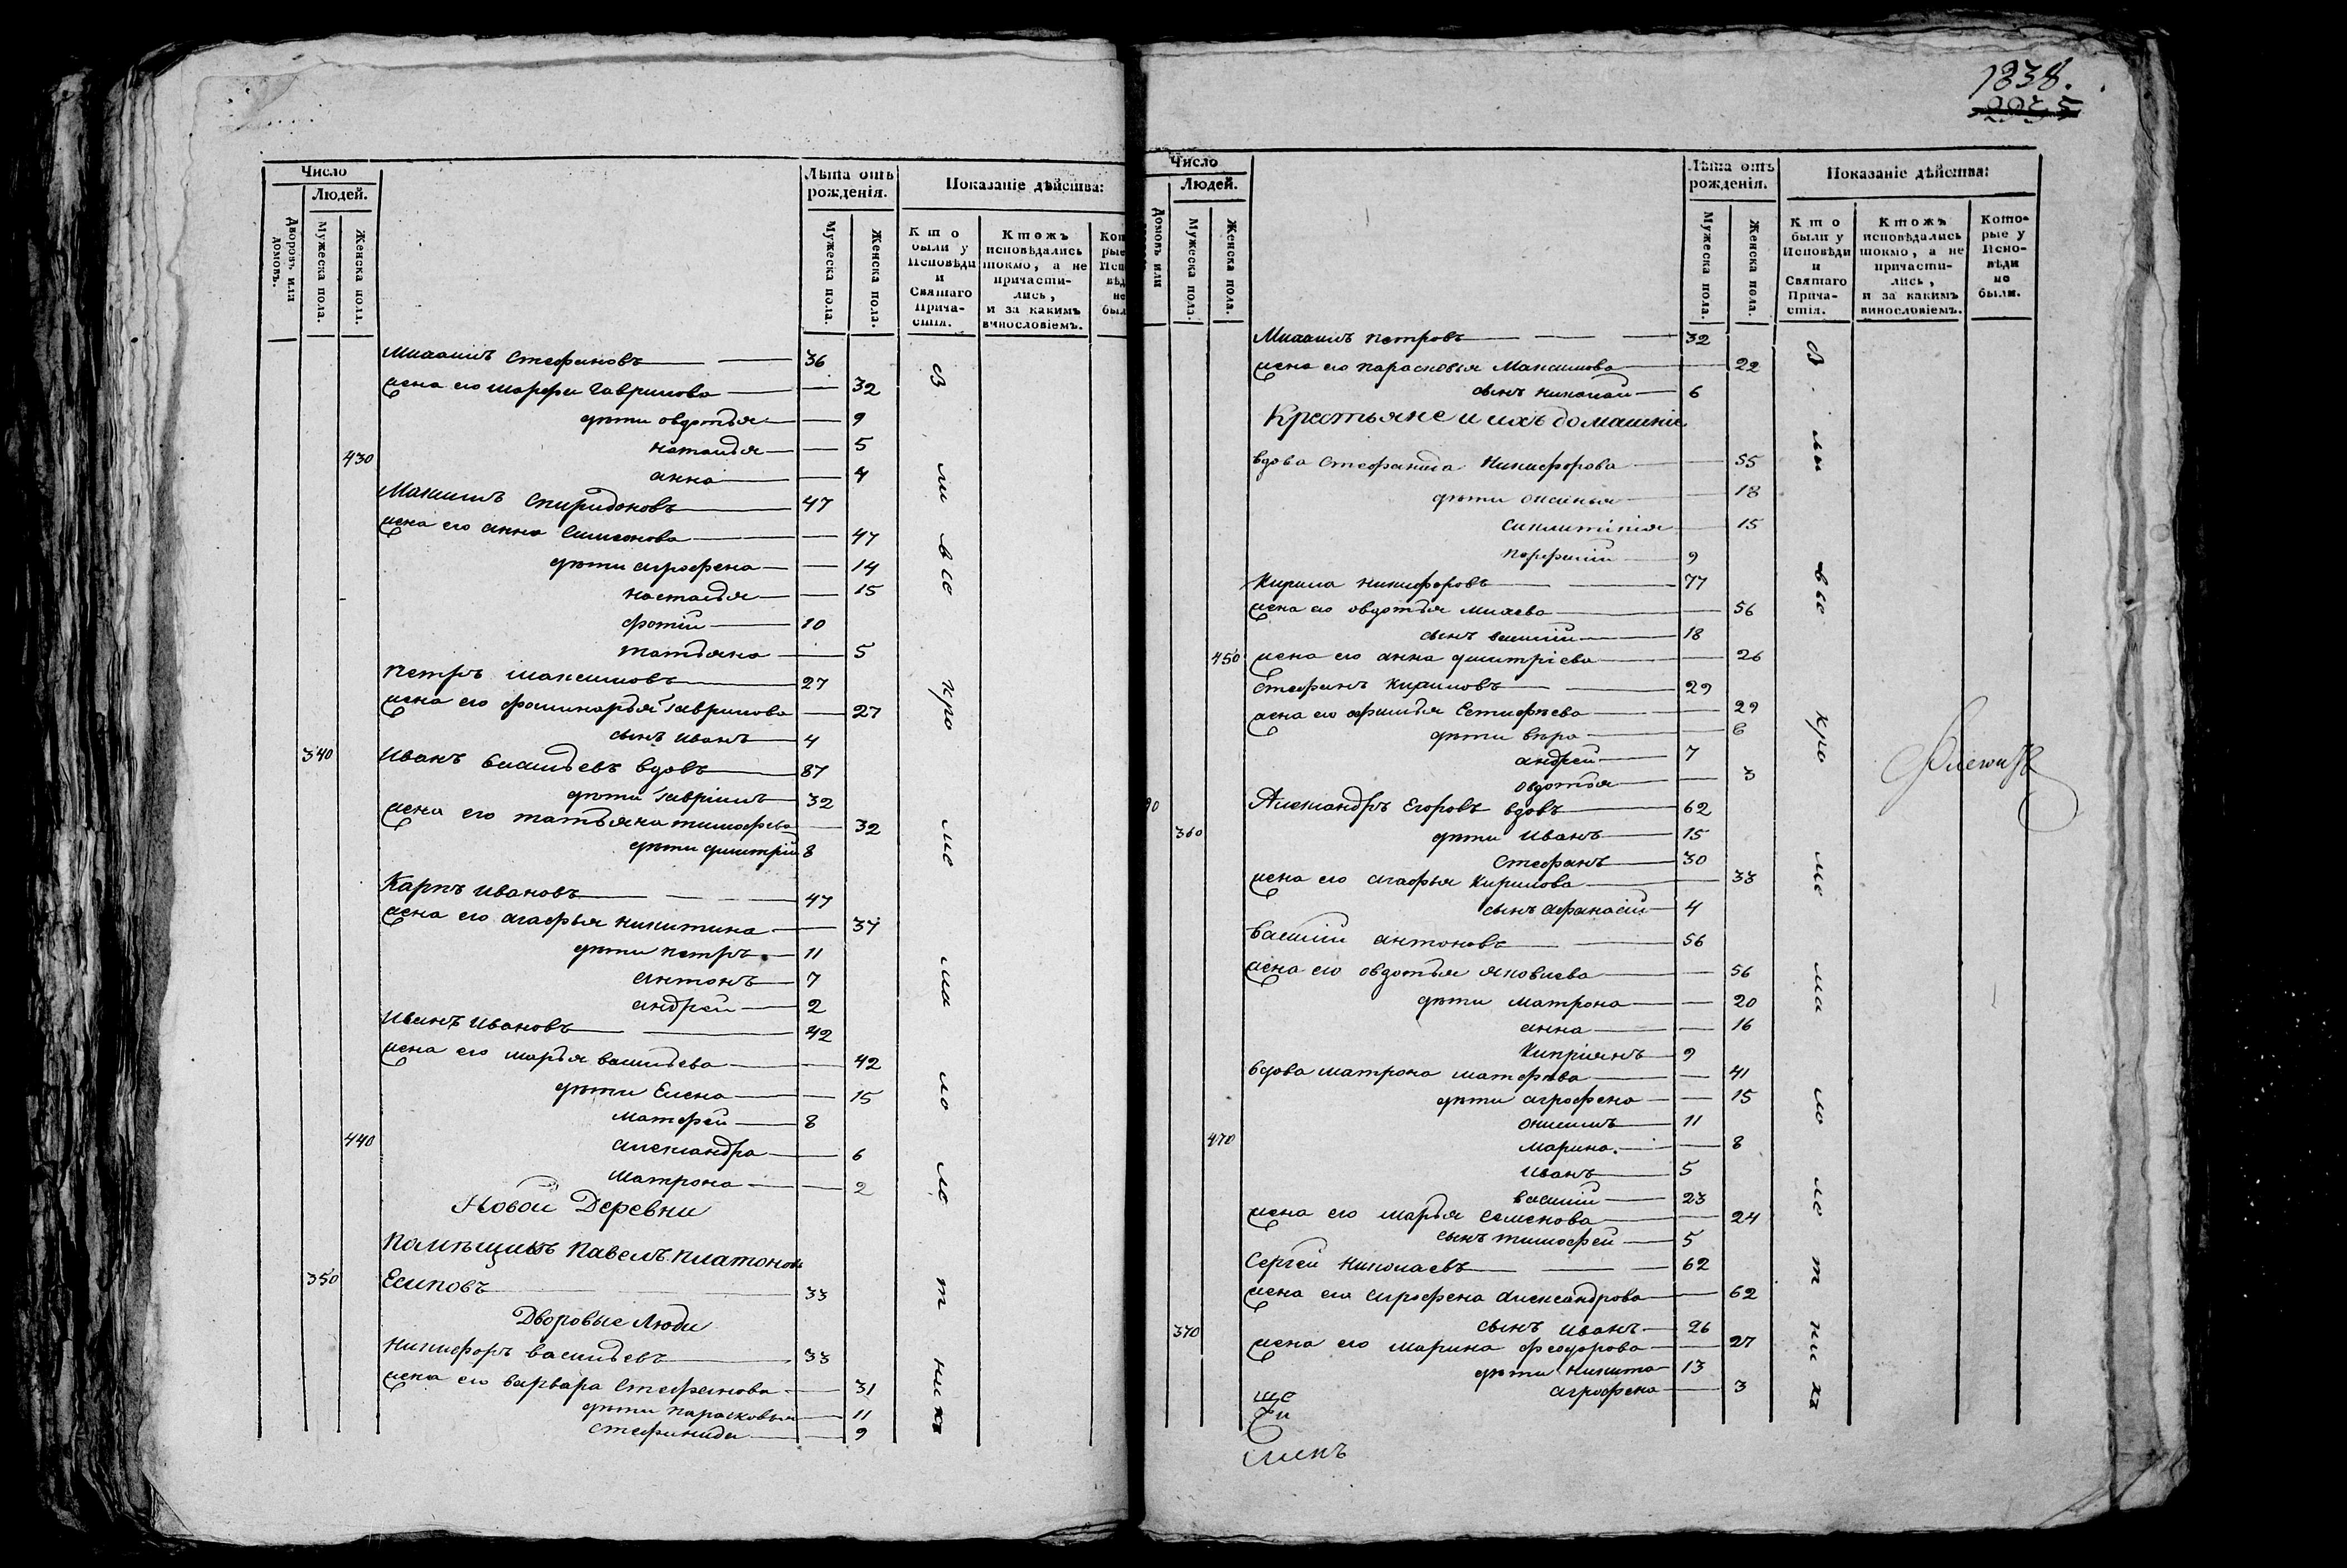 Число
Людей.
Дворовъ или домовъ.
Мужеска пола.
Женска пола.
Лѣта отъ рожденія.
Мужеска пола.
Женска пола.
Показаніе дѣйства:
Кто были у Исповѣди и Святаго Причастія.
Ктожъ исповѣдались токмо, а не причастились, и за какимъ винословіемъ.
Михаилъ Стефановъ 36
жена его марфа Гаврилова 32
дѣти овдотья 9
430 наталья 5
анна 4
Максимъ Спиридоновъ 47
жена его анна Симеонова 47
дѣти агрофена 14
настасья 15
фотій 10
татьяна 5
петръ максимовъ 27
жена его Гаврилова 27
сынъ иванъ 4
340 Иванъ Васильевъ вдовъ 87
дѣти Гавріилъ 32
жена его татьяна тимофеева 32
дѣти дмитрій 8
Карпъ ивановъ 47
жена его агафья никитина 37
дѣти петръ 11
антонъ 7
андрей 2
Иванъ Ивановъ 42
жена его марья васильева 42
дѣти Елена 15
матфей 8
440 александра 6
матрона 2
Новой Деревни
Помѣщикъ Павелъ платоновъ
350 Есиповъ 33
Дворовые Люди
никифоръ васильевъ 33
жена его варвара Стефанова 31
дѣти парасковья 11
стефанида 9
1838.
Число
Людей.
Домовъ или
Мужеска пола.
Женска пола.
Лѣта отъ рожденія.
Мужеска пола.
Женска пола.
Показаніе дѣйства:
Кто были у Исповѣди и Святаго Причастія.
Ктожъ исповѣдались токмо, а не причастились, и за какимъ винословіемъ.
Которые у Исповѣди не были.
Михаилъ петровъ 32
жена его парасковья Максимова 22
сынъ николай 6
Крестьяне и ихъ домашніе
вдова Стефанида Никифорова 55
дѣти оксинья 18
15
порфилій 9
Кирила никифоровъ 77
жена его овдотья михеева 56
сынъ василій 18
450 жена его анна дмитріева 26
Стефанъ Кириловъ 29
жена его 29
дѣти вѣра 6
андрей 7
овдотья 3
Александръ Егоровъ вдовъ 62
360 дѣти Иванъ 15
Стефанъ 30
жена его агафья кирилова 33
сынъ афанасій 4
Василій антоновъ 56
жена его овдотья яковлева 56
дѣти матрона 20
анна 16
Кипріянъ 9
вдова матрона матфѣева 41
дѣти агрофена 15
онисимъ 11
470 марина 8
иванъ 5
василій 23
жена его марья семенова 24
сынъ тимофей 5
Сергей николаевъ 62
жена его агрофена александрова 62
370 сынъ иванъ 26
жена его марина феодорова 27
дѣти никита 13
агрофена 3